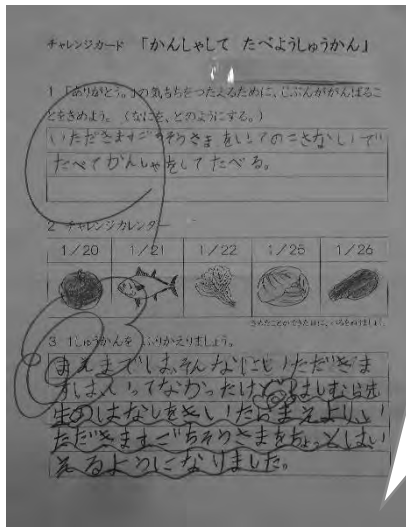 チャレンジカード 「かんしゃして たべようしゅうかん」
1 「ありがとう。」の気もちをつたえるために、じぶんががんばるこ
とをきめよう。（なにを、どのようにする。）
いただきますごちそうさまをいってのこさないで
たべてかんしゃをしてたべる。
2 チャレンジカレンダー
1/20 1/21 1/22 1/25 1/26
3 1しゅうかんを ふりかえりましょう。
まえまでは、そんなにといただきま
すは、いってなかったけど、はしむら先
生のはなしをきいたらまえより、い
ただきますごちそうさまをちょっとはい
えるようになりました。